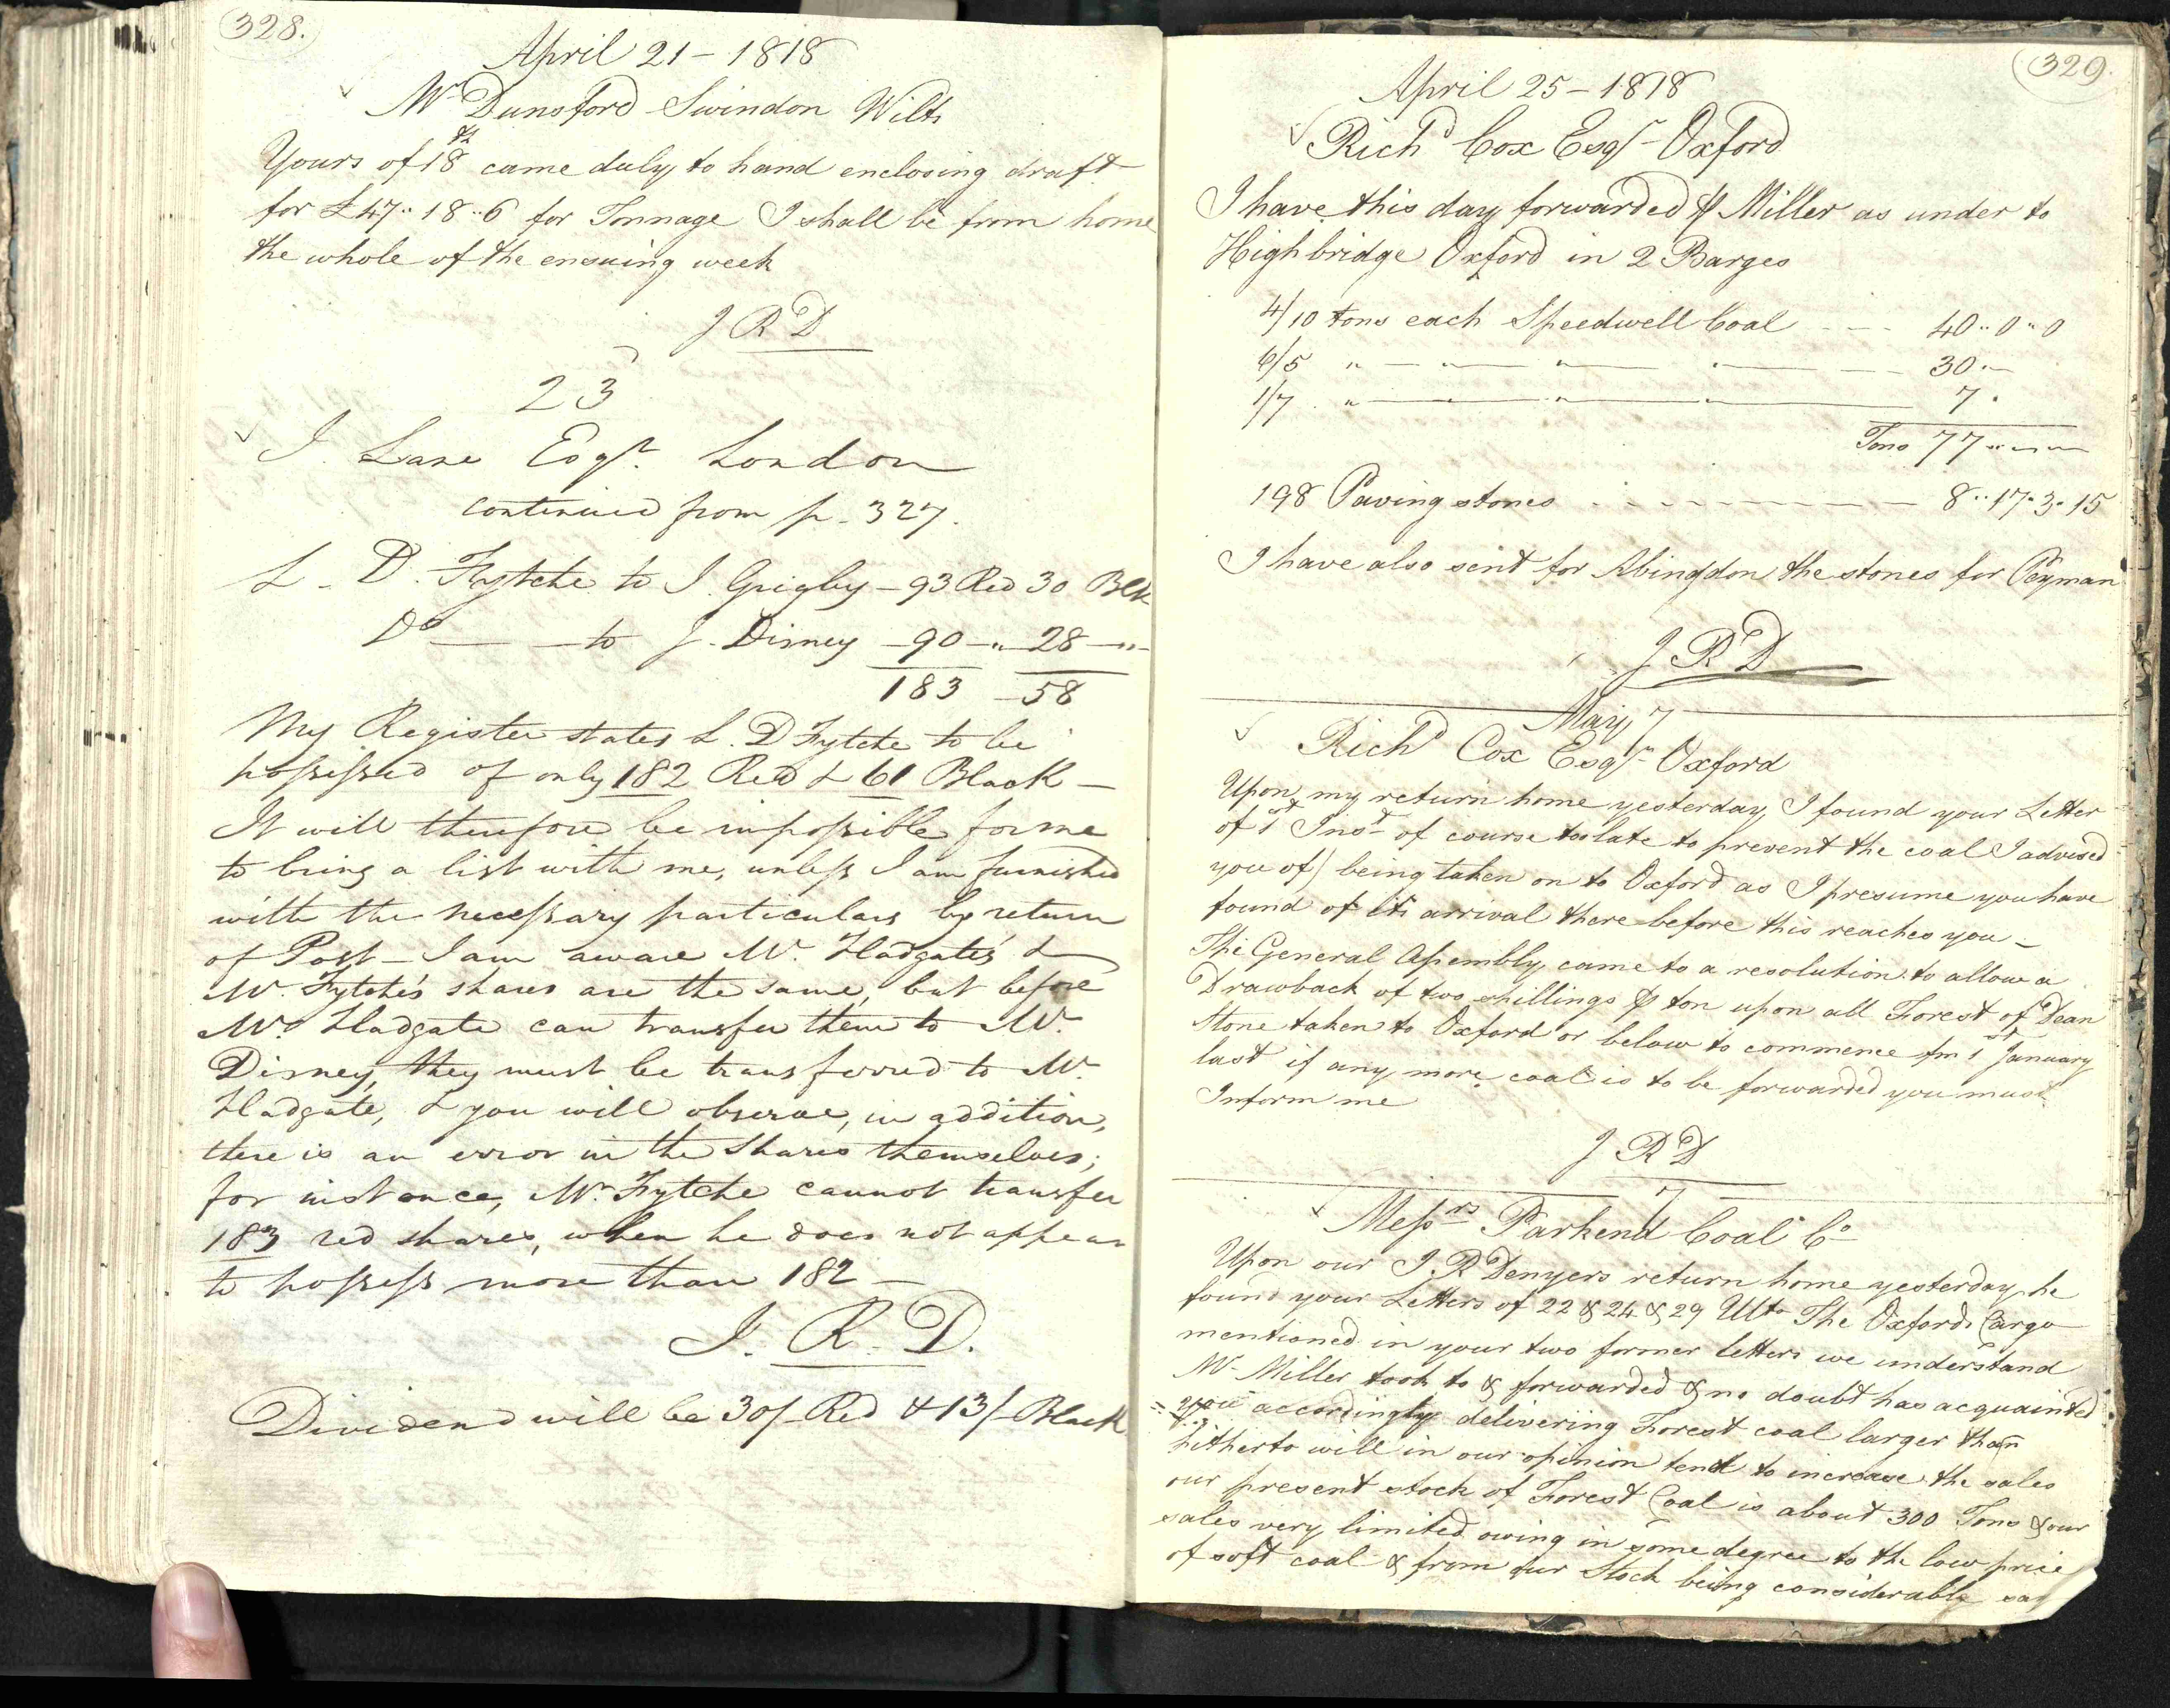 328.
April 21 - 1818
Mr Dunsford Swindon Wilts
Yours of 18th came duly to hand enclosing draft
for £47..18..6 for Tonnage I shall be from home
the whole of the ensuing week
J R D
23
J. Lane Esqr. London
continued from p. 327.
L. D. Fytche to J. Grigby - 93 Red 30 Blk
Do — — to J. Disney - 90 -"- 28 -"-
183 - 58
My Register states L. D Fytche to be
possessed of only 182 Red & 61 Black -
It will therefore be impossible for me
to bring a list with me, unless I am furnished
with the necessary particulars by return
of Post - I am aware Mr. Hadgate's &
Mr. Fytche's shares are the same, but before
Mr. Hadgate can transfer them to Mr.
Disney, they must be transferred to Mr.
Hadgate, & you will observe, in addition,
there is an error in the shares themselves;
for instance, Mr. Fytche cannot transfer
183 red shares, when he does not appear
to possess more than 182 -
J. R. D.
Dividend will be 30/- Red & 13/- Black
329.
April 25 - 1818
Richd Cox Esqr - Oxford
I have this day forwarded ⅌ Miller as under to
Highbridge Oxford in 2 Barges
4/10 tons each Speedwell Coal - - - 40..0"0
6/5 " — " — " — " — 30"-
1/7 " — " — " — " — 7 "
Tons 77 " - " -
198 Paving stones - - - - - - - 8..17.3.15
I have also sent for Abingdon the stones for Peyman
J R D
May 7
Richd Cox Esqr - Oxford
Upon my return home yesterday I found your Letter
of 1st Inst of course too late to prevent the coal I advised
you of) being taken on to Oxford as I presume you have
found of its arrival there before this reaches you -
The General Assembly came to a resolution to allow a
Drawback of two shillings ⅌ ton upon all Forest of Dean
Stone taken to Oxford or below to commence fm 1st January
last if any more coal is to be forwarded you must
Inform me
J R D
7
Messrs Parkend Coal Co
Upon our J. R Denyers return home yesterday he
found your Letters of 22 & 24 & 29 Ulto The Oxford Cargo
mentioned in your two former letters we understand
Mr Miller took to & forwarded & no doubt has acquainted
you accordingly delivering Forest coal larger than
hitherto will in our opinion tend to increase the sales
our present stock of Forest Coal is about 300 Tons & our
sales very limited owing in some degree to the low price
of soft coal & from our Stock being considerable say